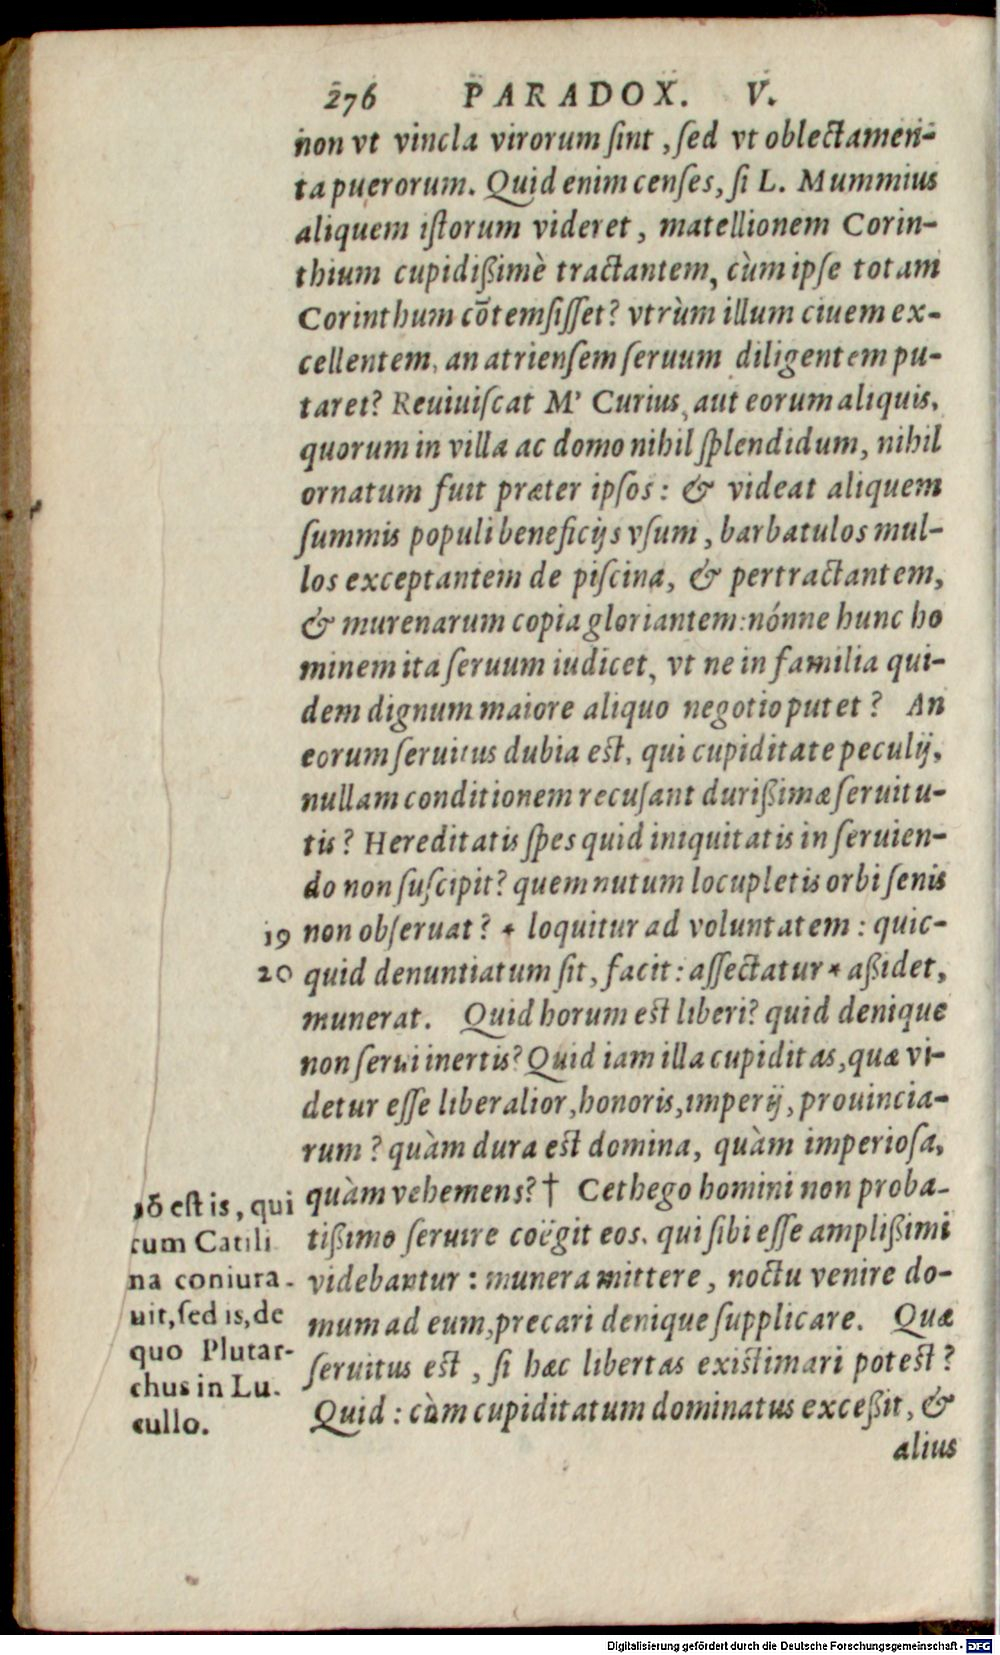 276 PARADOX. V.
non vt vincla virorum ſint, ſed vt oblectamen-
ta puerorum. Quid enim cenſes, ſi L. Mummius
aliquem iſtorum videret, matellionem Corin-
thium cupidißimè tractantem, cùm ipſe totam
Corinthum cõtemſiſſet? vtrùm illum ciuem ex-
cellentem, an atrienſem ſeruum diligentem pu-
taret? Reuiuiſcat M' Curius, aut eorum aliquis,
quorum in villa ac domo nihil ſplendidum, nihil
ornatum fuit præter ipſos: & videat aliquem
ſummis populi beneficijs vſum, barbatulos mul-
los exceptantem de piſcina, & pertractantem,
& murenarum copia gloriantem: nónne hunc ho
minem ita ſeruum iudicet, vt ne in familia qui-
dem dignum maiore aliquo negotio putet? An
eorum ſeruitus dubia est, qui cupiditate peculij,
nullam conditionem recuſant durißimæ ſeruitu-
tis? Hereditatis ſpes quid iniquitatis in ſeruien-
do non ſuſcipit? quem nutum locupletis orbi ſenis
19 non obſeruat? * loquitur ad voluntatem: quic-
20 quid denuntiatum ſit, facit: aſſectatur * aßidet,
munerat. Quid horum est liberi? quid denique
non ſerui inertis? Quid iam illa cupiditas, quæ vi-
detur eſſe liberalior, honoris, imperij, prouincia-
rum? quàm dura est domina, quàm imperioſa,
quàm vehemens? † Cethego homini non proba-
tißimo ſeruire coëgit eos, qui ſibi eſſe amplißimi
videbantur: munera mittere, noctu venire do-
mum ad eum, precari denique ſupplicare. Quæ
ſeruitus est, ſi hæc libertas existimari potest?
Quid: cùm cupiditatum dominatus exceßit, &
alius
nō eſt is, qui
cum Catili
na coniura-
uit, ſed is, de
quo Plutar-
chus in Lu.
cullo.
Digitalisierung gefördert durch die Deutsche Forschungsgemeinschaft - DFG